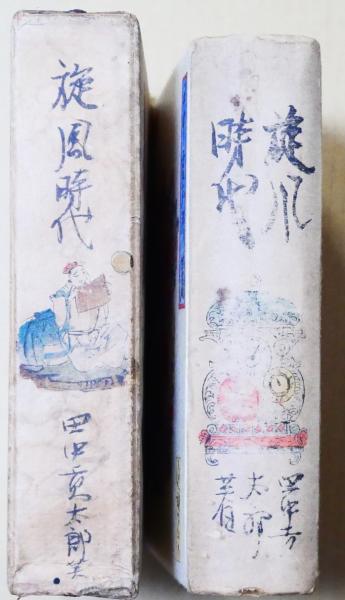 旋風時代
田中貢太郎
旋風
時代
田中貢
太郎
著